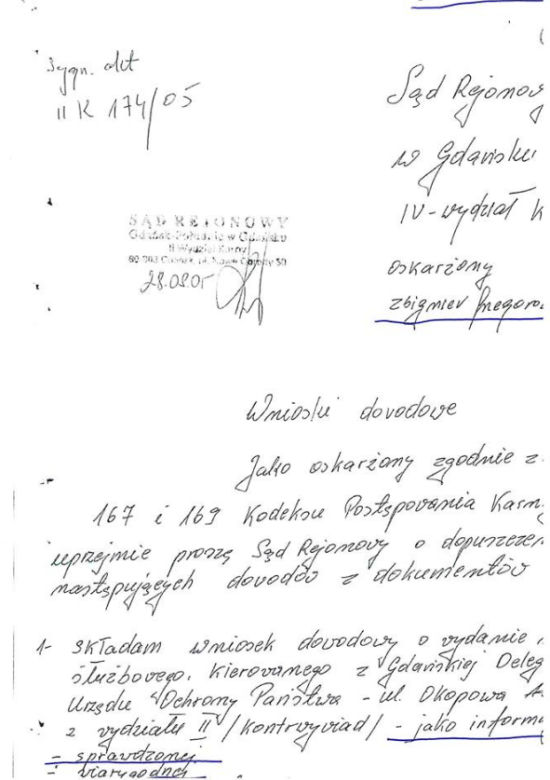 Sygn. akt
II K 174/05
Sąd Rejonow
w Gdańsku
IV-wydział K
SĄD REJONOWY
Gdańsk-Południe w Gdańsku
II Wydział Karny
28.09.05
oskarżony
Zbigniew
Wnioski dovodowe
Jako oskarżony zgodnie z
167 i 169 Kodeksu Postępovania Karn
uprzejmie proszę Sąd Rejonowy o dopuszczen
następujących dovodów z dokumentów
1- Składam wniosek dovodowy o wydanie
służbovego, kierovanego z Gdańskiej Deleg
Urzędu Ochrony Państwa - ul. Okopowa
z wydziału II /kontrwyviad/ - jako inform
- sprawdzonej
- viarygodnej